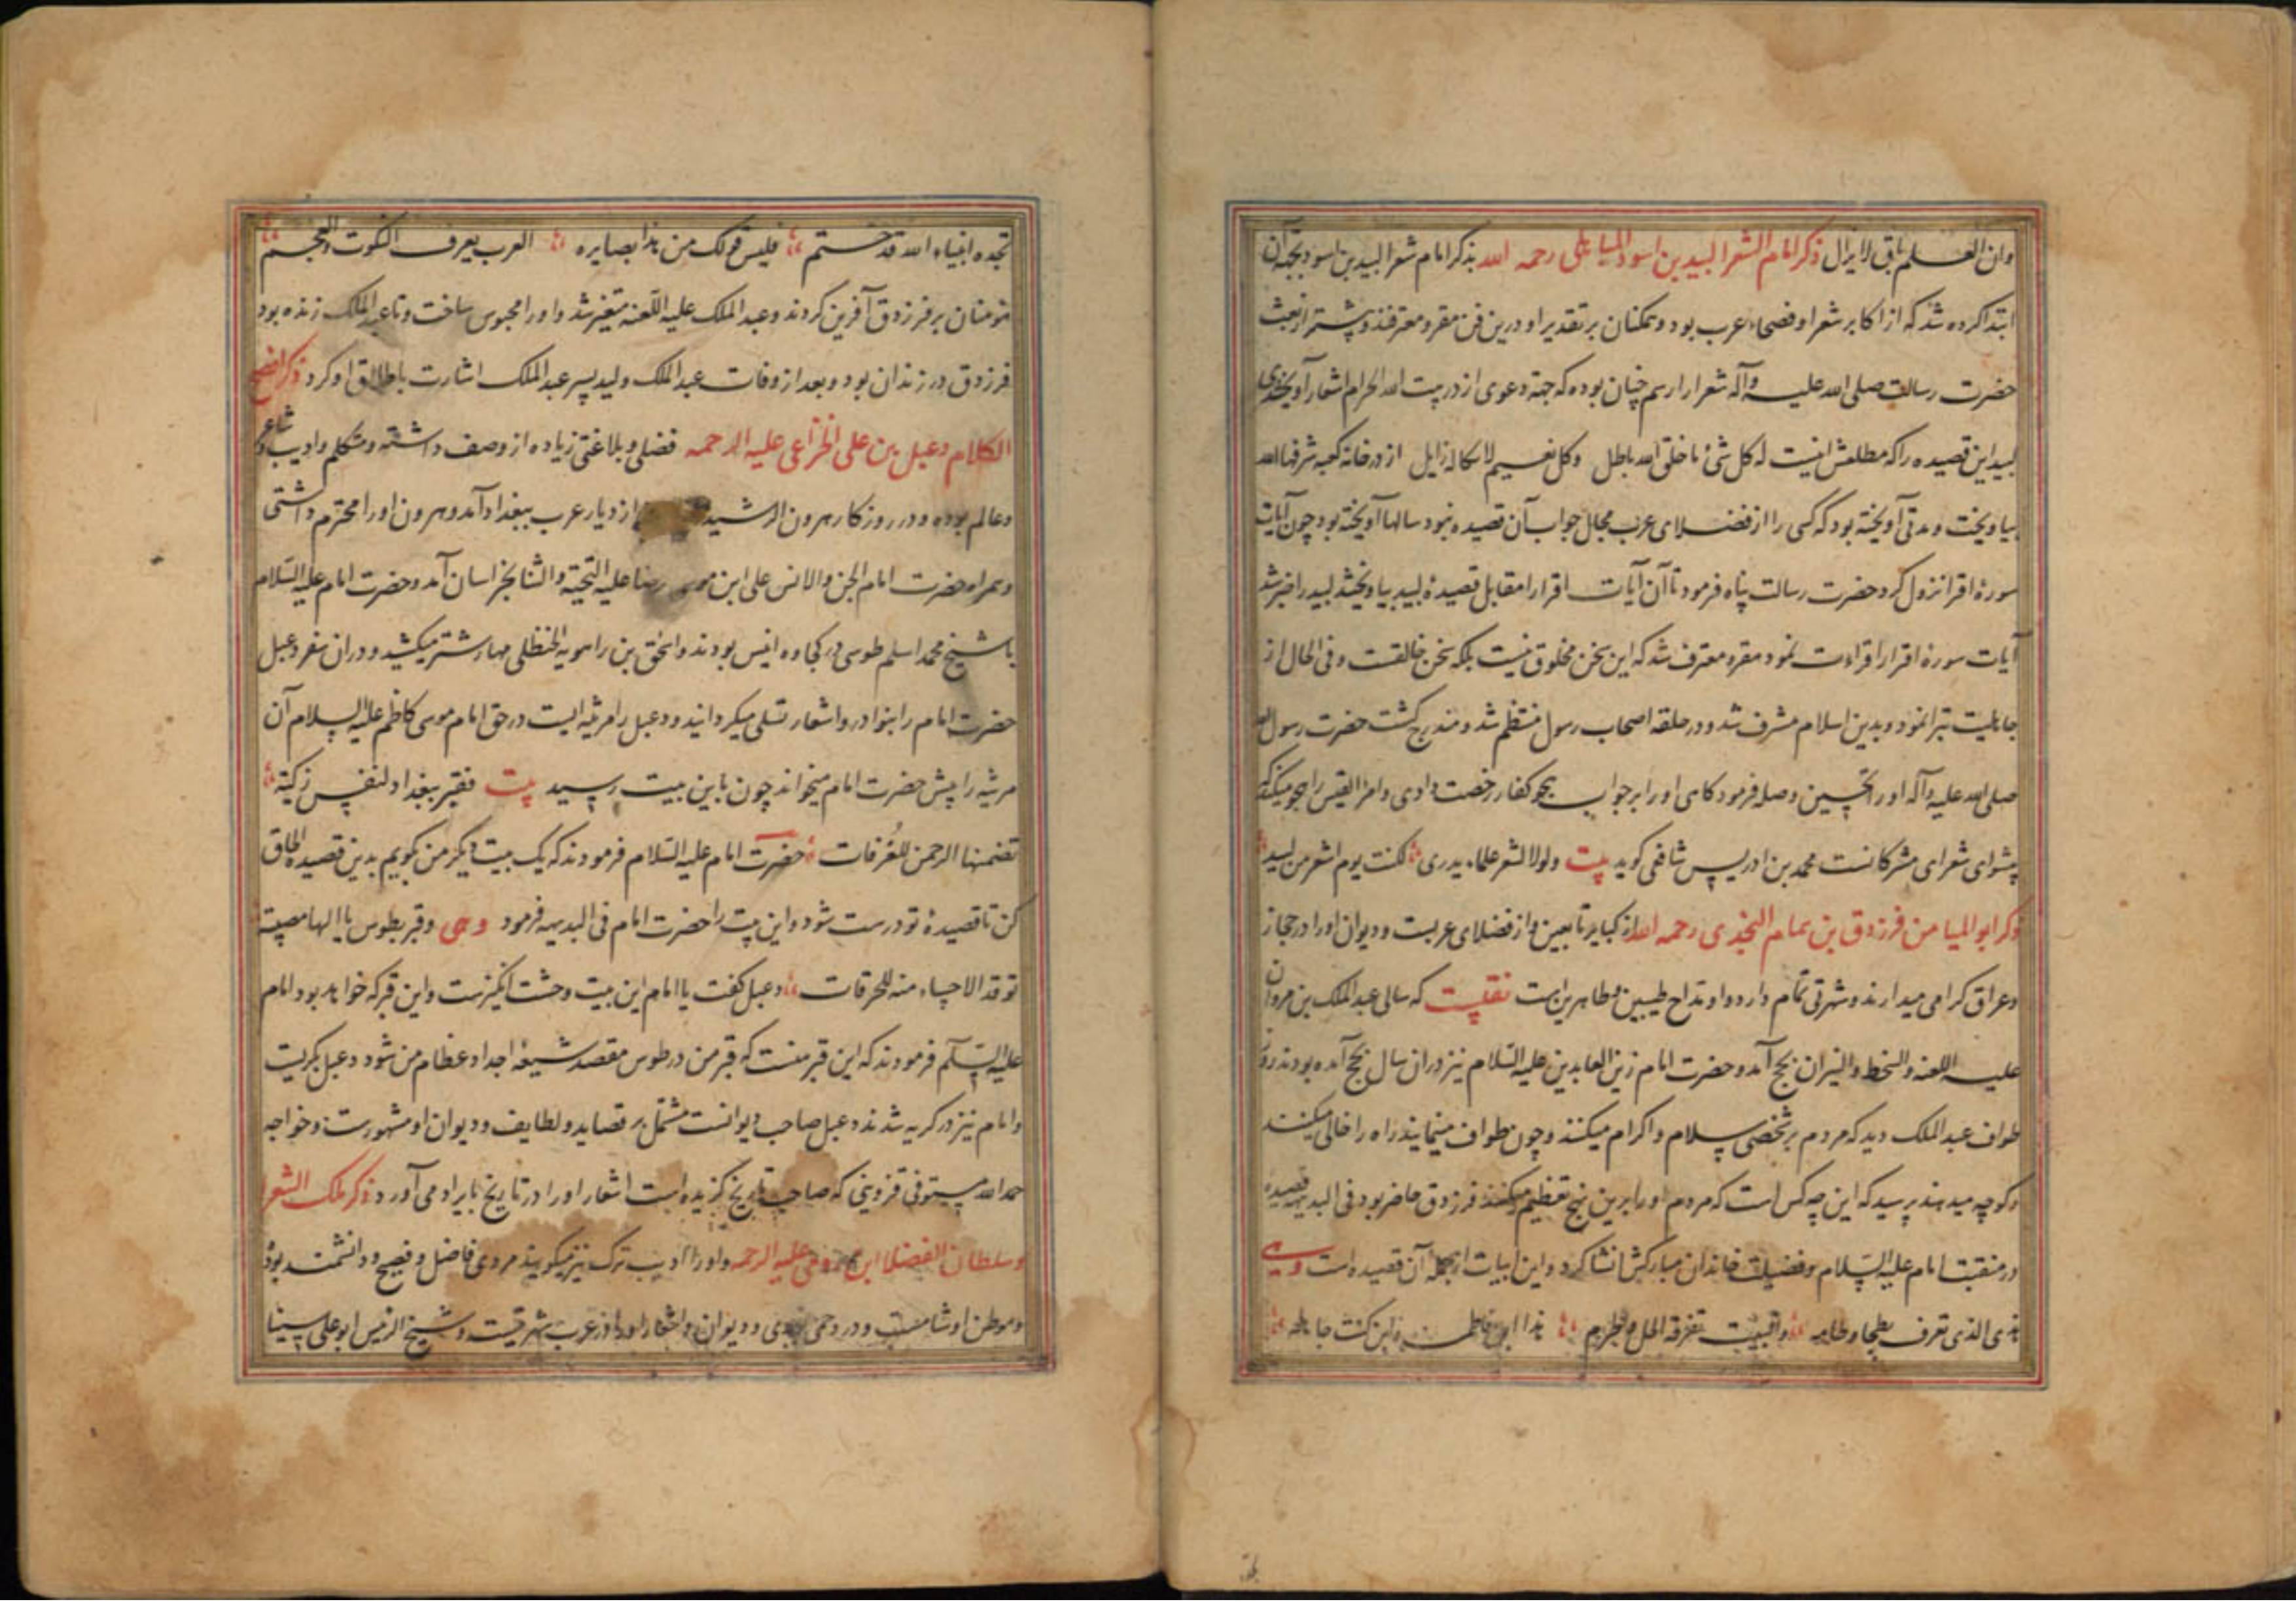 وان العلم باق لایزال ذکر امام الشعرا لبید بن اسود الباهلی رحمه الله بذکر امام شعرا لبید بن اسود بجهة آن
ابتدا کرده شد که از اکابر شعرا و فصحاء عرب بود و همکنان بر تقدیر او درین فن مقر و معترفند و پیشتر از بعثت
حضرت رسالت صلی الله علیه وآله شعرا را رسم چنان بوده که جهة دعوی از در بیت الله الحرام اشعار آویختندی
لبید این قصیده را که مطلعش اینست له کل شئ ما خلق الله باطل وکل نعیم لا محاله زایل از در خانه کعبه شرفها الله
بیاویخت و مدتی آویخته بود که کسی را از فضلای عرب مجال جواب آن قصیده نبود سالها آویخته بود چون آیات
سورهٔ اقرا نزول کرد حضرت رسالت پناه فرمود تا آن آیات اقرا را مقابل قصیدهٔ لبید بیاویختند لبید را خبر شد
آیات سورهٔ اقرا را قراءت نمود مقر و معترف شد که این سخن مخلوق نیست بلکه سخن خالقست و فی الحال از
جاهلیت تبرا نمود و بدین اسلام مشرف شد و در حلقه اصحاب رسول منتظم شد و مندرج کشت حضرت رسول الله
صلی الله علیه وآله او را تحسین و صله فرمود کاهی او را بر جواب هجو کفار رخصت دادی و امرا القیس را هجو میکند که
پیشوای شعرای مشرکانست محمد بن ادریس شافعی کوید بیت ولولا الشعر علماء یدری لکنت یوم اشعر من لبید
ذکر ابو المیامن فرزدق بن تمام النجدی رحمه الله از کبایر تابعین و از فضلای عربست و دیوان او را در حجاز
و عراق کرامی میدارند و شهرتی تمام دارد و او مداح طیبین و طاهرین است نقلیست که سالی عبد الملک بن مروان
علیه اللعنه والسخط والنیران بحج آمد و حضرت امام زین العابدین علیه السّلام نیز دران سال بحج آمده بودند روز
طواف عبد الملک دید که مردم بر شخصی سلام و اکرام میکنند و چون طواف مینمایند راه را خالی میکنند
و کوچه میدهند پرسید که این چه کس است که مردم او را برین نهج تعظیم میکنند فرزدق حاضر بود فی البدیهه قصیده
در منقبت امام علیه السّلام و فضیلت خاندان مبارکش انشا کرد و این ابیات از جمله آن قصیده است وهی
هذی الذی تعرف بطحا وطاته والبیت تعرفه الحل والحرم هذا ابن فاطمه وان کنت جاهله
بجده انبیاء الله قد ختم فلیس قولک من هذا بضایره العرب یعرف النکرت والعجم
مؤمنان بر فرزدق آفرین کردند و عبد الملک علیه اللّعنه متغیر شد و او را محبوس ساخت و تا عبد الملک زنده بود
فرزدق در زندان بود و بعد از وفات عبد الملک ولید پسر عبد الملک اشارت باطلاق او کرد ذکر افصح
الکلام دعبل بن علی الخزاعی علیه الرحمه فضلی و بلاغتی زیاده از وصف داشته و متکلم و ادیب و شاعر
و عالم بوده و در روزکار هرون الرشید از دیار عرب ببغداد آمد و هرون او را محترم داشتی
و همراه حضرت امام الجن والانس علی ابن موسی رضا علیه التحیّة والثنا بخراسان آمد و حضرت امام علیه السّلام
با شیخ محمد اسلم طوسی در کجاوه انیس بودند و اسحق بن راهویه الحنظلی مهار شتر میکشید و دران سفر دعبل
حضرت امام را بنوادر و اشعار تسلی میکردانید و دعبل را مرثیه ایست در حق امام موسی کاظم علیه السلام آن
مرثیه را پیش حضرت امام میخواند چون باین بیت رسید بیت فقبر ببغداد لنفس زکیّة
تضمنها الرحمن للغُرفات حضرت امام علیه السّلام فرمودند که یک بیت دیکر من کویم بدین قصیده الحاق
کن تا قصیدهٔ تو درست شود و این بیت را حضرت امام فی البدیهه فرمود وهی وقبر بطوس یا الها مصیبته
توقد الاحیاء منه للحرقات دعبل کفت یا امام این بیت وحشت انکیزست و این قبر که خواهد بود امام
علیه السّلم فرمودند که این قبر منست که قبر من در طوس مقصد شیعهٔ اجداد عظام من شود دعبل بکریست
و امام نیز در کریه شدند و دعبل صاحب دیوانست مشتمل بر قصاید و لطایف و دیوان او مشهورست و خواجه
حمد الله مستوفی قزوینی که صاحب تاریخ کزیده است اشعار او را در تاریخ بایراد می آورد ذکر ملک الشعرا
و سلطان الفضلا ابن رومی علیه الرحمه و او را ادیب ترک نیز میکویند مردی فاضل و فصیح و دانشمند بود
و موطن او شامست و در حمص بودی و دیوان و اشعار او را در عرب شهرتیست و شیخ الرئیس ابو علی سینا